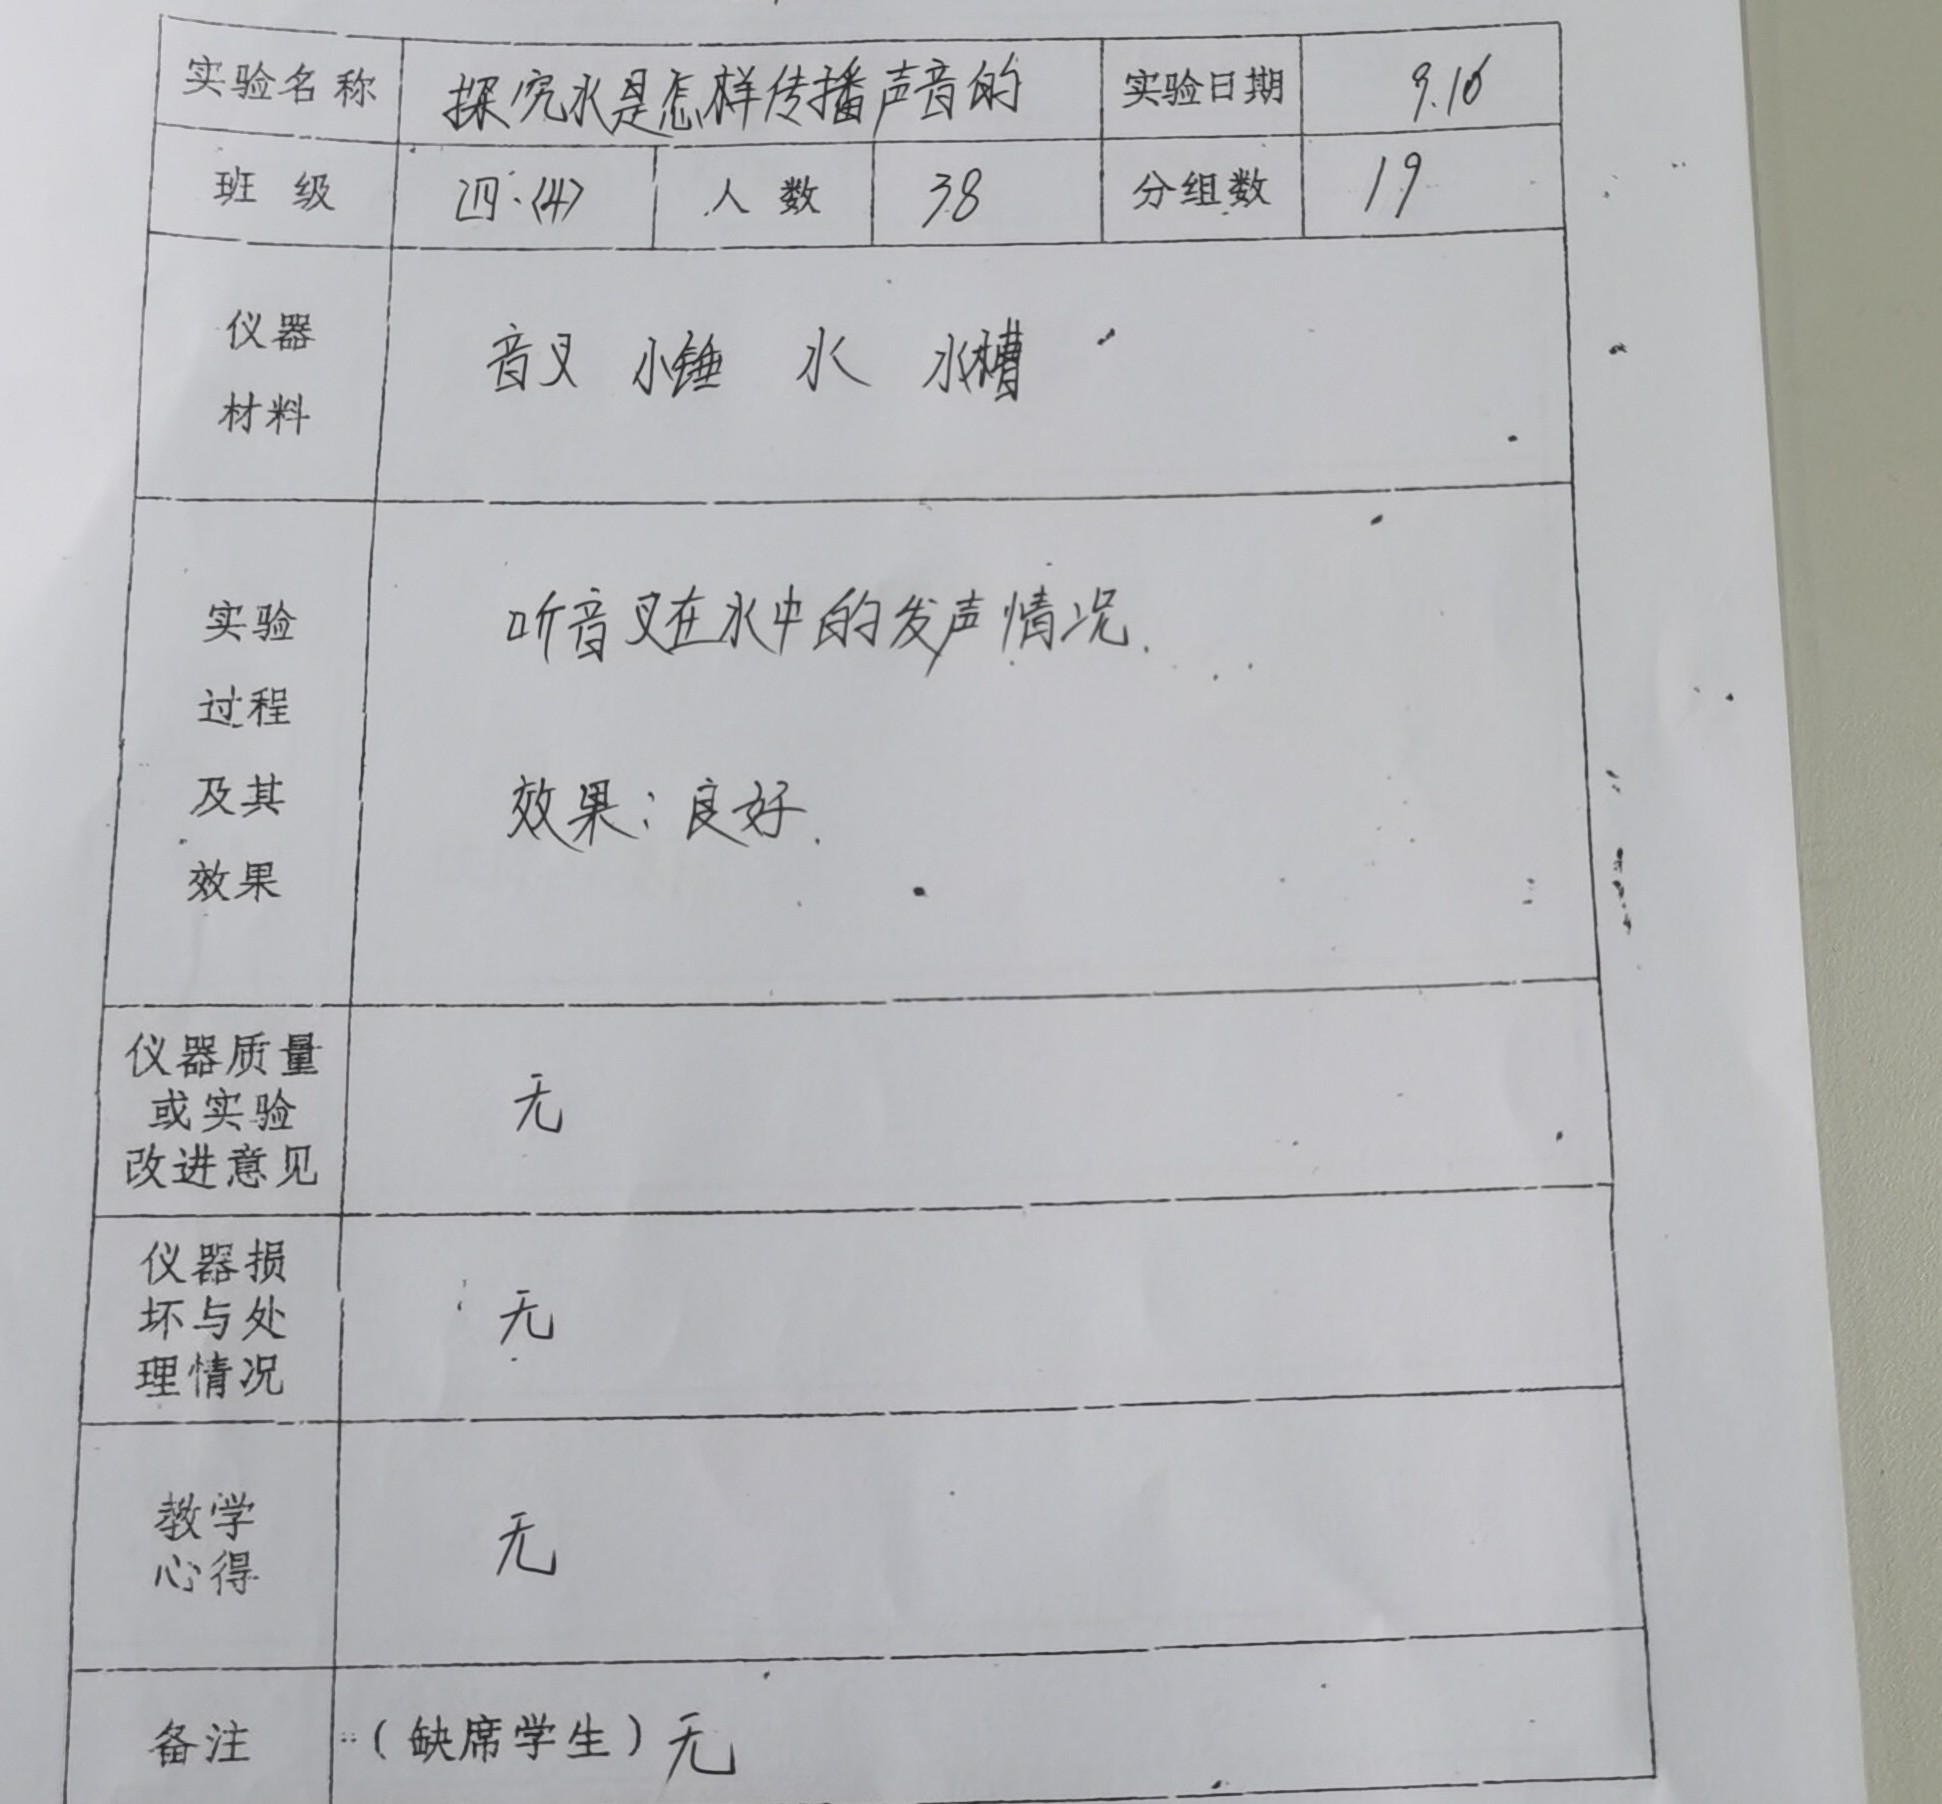 实验名称 探究水是怎样传播声音的 实验日期 9.16
班 级 四.(4) 人 数 38 分组数 19
仪器
材料
音叉 小锤 水 水槽
实验
过程
及其
效果
听音叉在水中的发声情况.
效果:良好.
仪器质量
或实验
改进意见
无
仪器损
坏与处
理情况
无
教学
心得
无
备注 (缺席学生)无